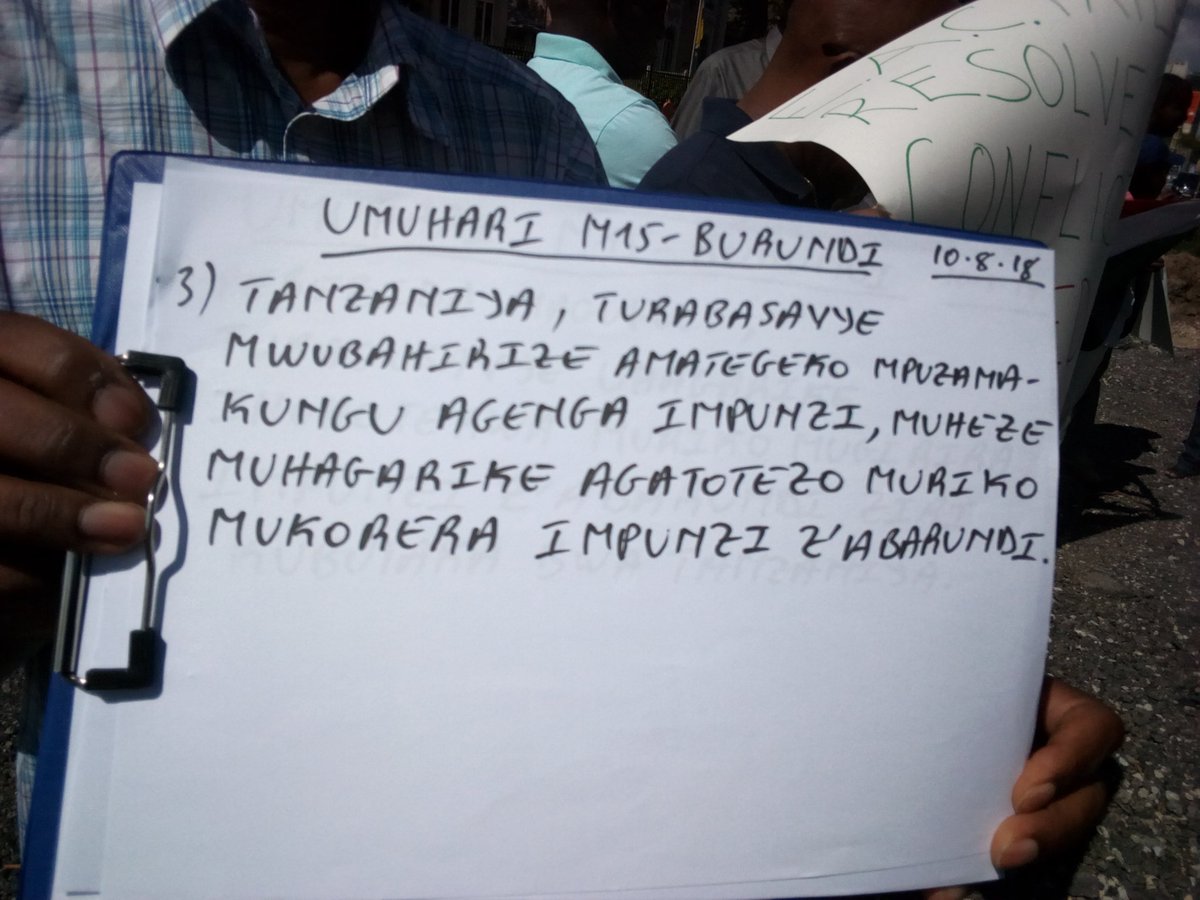 UMUHARI M15-BURUNDI 10.8.18
3) TANZANIYA, TURABASAVYE
MWUBAHIRIZE AMATEGEKO MPUZAMA-
KUNGU AGENGA IMPUNZI, MUHEZE
MUHAGARIKE AGATOTEZO MURIKO
MUKORERA IMPUNZI Z'ABARUNDI.
RESOLVE
CONFLIC